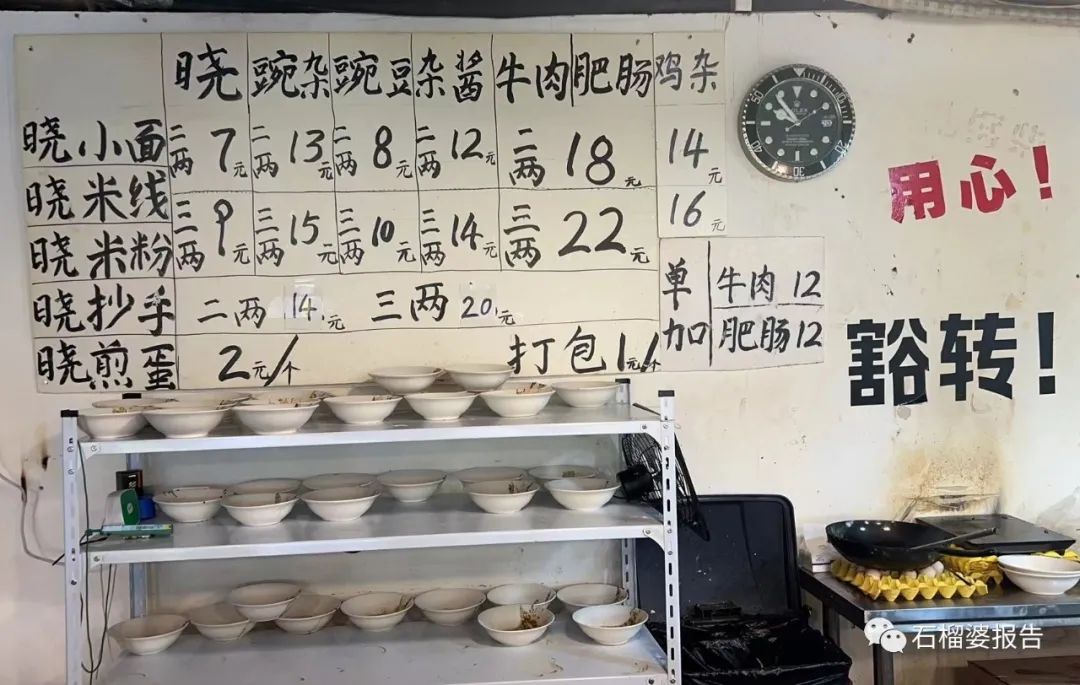 晓 豌杂 豌豆 杂酱 牛肉 肥肠 鸡杂
晓小面 二两 7元 二两 13元 二两 8元 二两 12元 二两 18元 14元
晓米线
晓米粉 三两 9元 三两 15元 三两 10元 三两 14元 三两 22元 16元
晓抄手 二两 14.元 三两 20.元
晓煎蛋 2元/个 打包1元/个
单加 牛肉 12
肥肠 12
用心!
豁转!
石榴婆报告